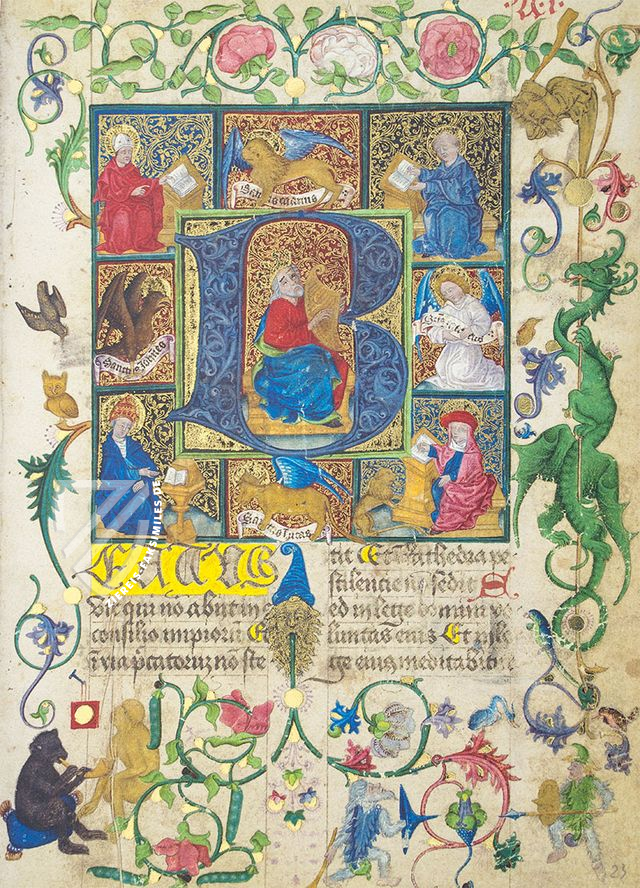 Sanctus marcus
B
Sanctus Johannes
Sanctus Lucas
EATVS
Vir qui no abijt in
consilio impioru Et
i via pctatoruz no ste
tit Et in cathedra pe
stilencie no sedit S
ed in lege domini vo
luntas eius Et i le
ge eius meditabitur
23